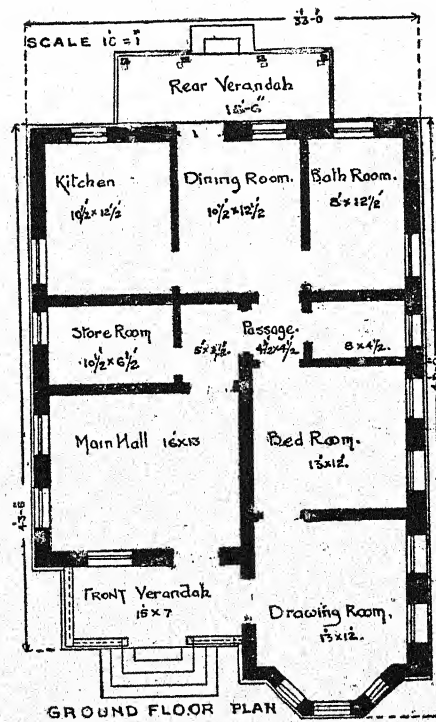 33'-0"
SCALE 10' = 1"
Rear Verandah
Kitchen
10½' × 12½'
Dining Room.
10½' × 12½'
Bath Room.
8' × 12½'
Store Room
10½' × 6½'
Passage.
4½' × 4½'
8 × 4½.
Main Hall 16' × 13
Bed Room.
13' × 12'.
43'-6"
FRONT Verandah
15 × 7
Drawing Room.
13' × 12'.
GROUND FLOOR PLAN